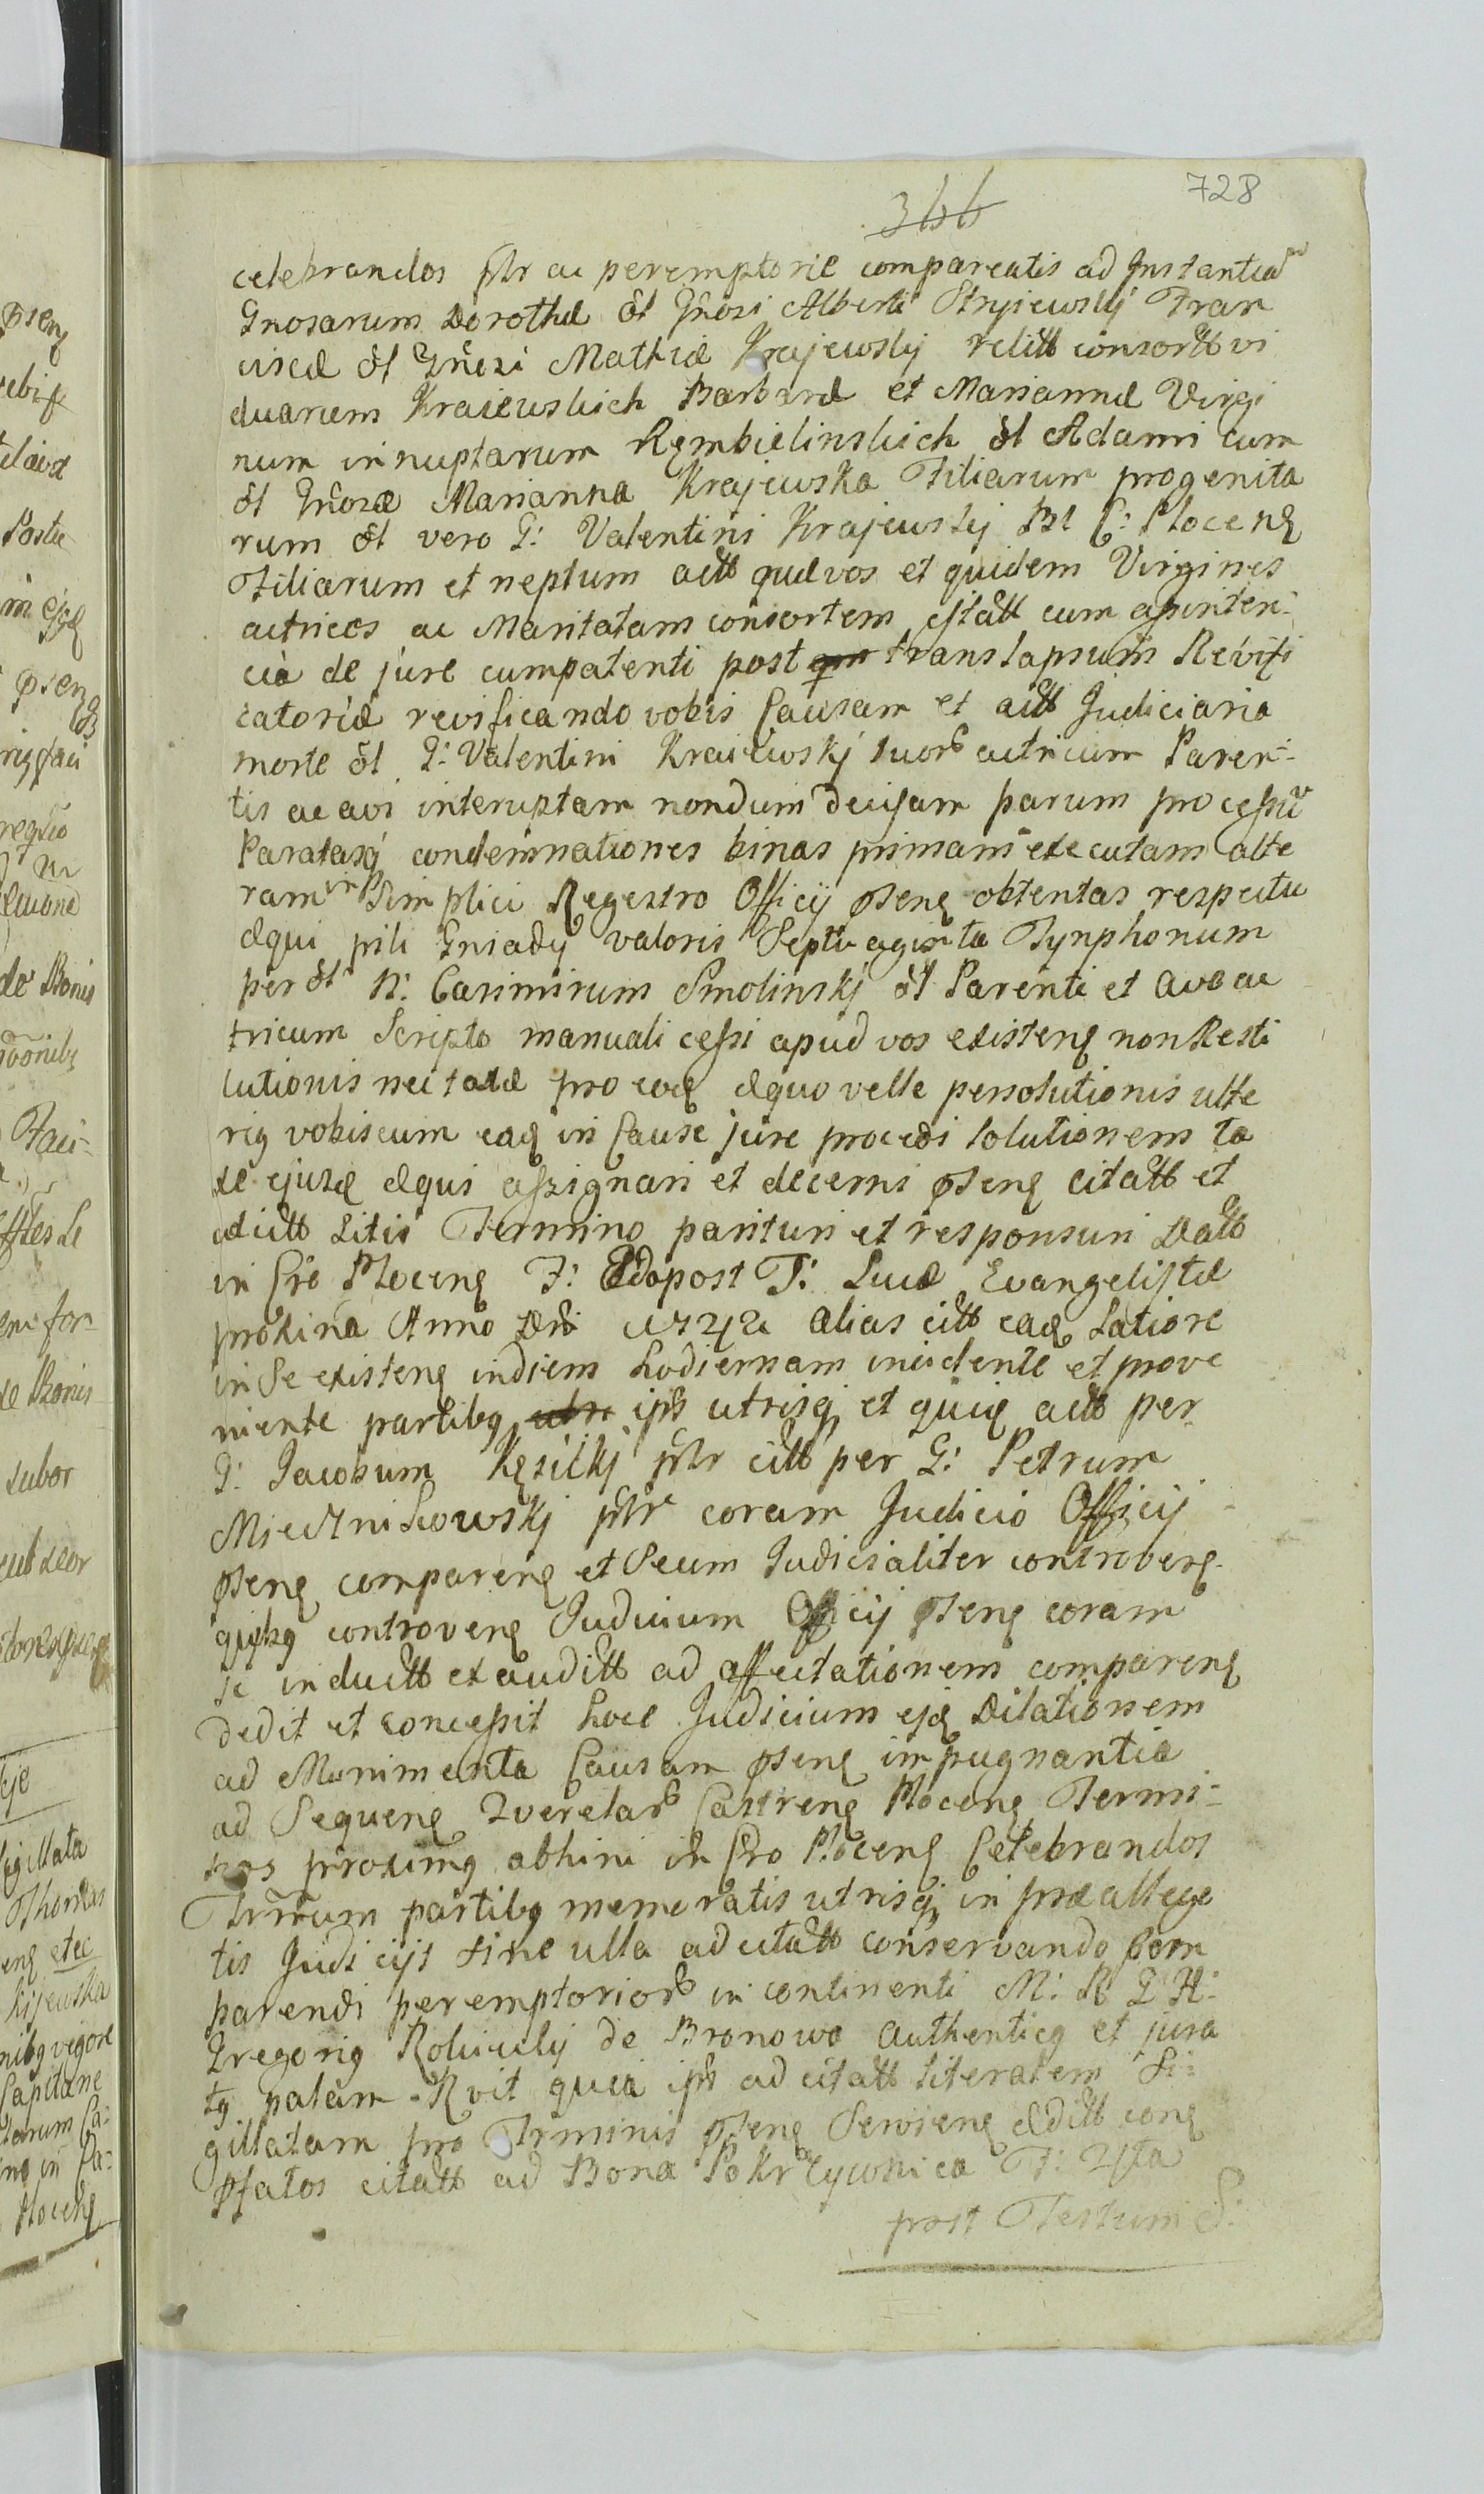 728
366
celebrandos pltr ac peremptorie compareatis ad Instantia
Gnosarum Dorotheæ ol Gnosi Alberti Stryiewskij Fran
ciscæ ol Gnosi Mathiæ Krajewskij relitt consortt vi
duarum Kraiewskich Barbaræ et Mariannæ Virgi
num innuptarum Rembielinskich ol Adami cum
ol Gnosæ Marianna Krajewska Filiarum progenita
rum ol vero G: Valentini Krajewskij Bl C: Plocenę
Filiarum et neptum actt quæ vos et quidem Virgines
actrices ac Maritatam consortem citatt cum assisten-
cia de jure cumpatenti post translapsum Revifi
catoriæ revificando vobis Causam et actt Judiciaria
morte ol G: Valentini Kraiewskj suor actricum Paren-
tis ac avi interuptam nondum decisam parum processu
Paratasq condemnationes binas primam executam alte
ram in Simplici Regestro Officij psenę obtentas respectu
æqui pili Gniady valoris Septuaginta Tynphonum
per ol N: Casimirum Smolinskj ol Parenti et avo ac
tricum Scripto manuali cessi apud vos existenę non Resti
tutionis nec taxæ pro eoę æquo velle persolutionis ulte
rig vobiscum eaę in Causa jure procedi solutionem ta
xæ ejusę æqui assignari et decerni psenę citatt et
adictt Litis Termino parituri et responsuri Datt
in Cro Plocenę F: 2do post F: Lucæ Evangelistæ
proxima Anno Dni 1742 alias citt eaę Latiore
in Se existenę in diem hodiernam incidente et prove
niente partibg ips utrisq et quię actt per
G: Jacobum Kęsickj pltr citt per G: Petrum
Miecznikowskj pltr coram Judicio Officij
psenę comparenę et Secum Judicialiter controvenę
quibg controvenę Judicium Officij psenę coram
se inductt exauditt ad affectationem comparenę
dedit et concessit hocce Judicium eję Dilationem
ad Munimenta Causam psenę impugnantia
ad Sequenę Querelar Castrenę Plocenę Termi-
nos proximg abhinc in Cro Plocenę Celebrandos
Trnum partibg memoratis utrisq in præallega
tis Judicijs sine ulla ad citatt conservando Com
parendi peremptorior in continenti M: R G H:
Gregorig Rolwickij de Bronowo authenticg et jura
tg palam Rvit quia ips ad citatt literatem Si-
gillatam pro Trminis psenę Servienę edditt conę
pfatos citatt ad Bona Pokrzywnica F: 4ta
post Festum S: